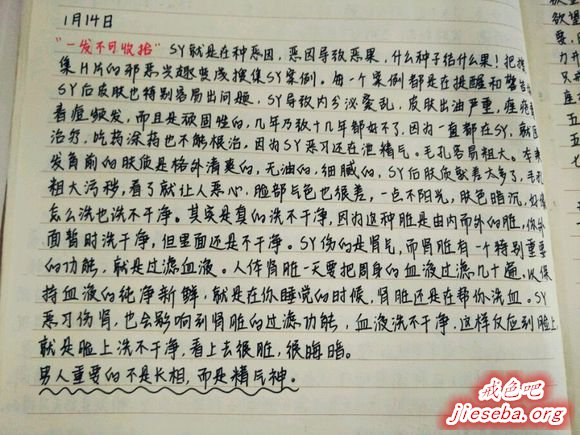 1月14日
"一发不可收拾" SY就是在种恶因，恶因导致恶果，什么种子结什么果！把搜
集H片的邪恶兴趣变成搜集SY案例。每一个案例都是在提醒和警
SY后皮肤也特别容易出问题，SY导致内分泌紊乱，皮肤出油严重，痤疮
着痘频发，而且是顽固性的，几年乃致十几年都好不了，因为一直都在SY，就
治疗，吃药涂药也不能根治，因为SY恶习还在泄精气。毛孔容易粗大。本来
发角前的肤质是格外清爽的，无油的，细腻的，SY后肤质就差太多了，毛孔
粗大污秽，看了就让人恶心，脸部气色也很差，一点不阳光，肤色暗沉，好像
怎么洗也洗不干净。其实是真的洗不干净，因为这种脏是由内而外的脏，你外
面暂时洗干净，但里面还是不干净。SY伤的是肾气，而肾脏有一个特别重要
的功能，就是过滤血液。人体肾脏一天要把周身的血液过滤几十遍，以保
持血液的纯净新鲜，就是在你睡觉的时候，肾脏还是在帮你洗血。SY
恶习伤肾，也会影响到肾脏的过滤功能，血液洗不干净，这样反应到脸上
就是脸上洗不干净，看上去很脏，很晦暗。
男人重要的不是长相，而是精气神。
戒色吧
jieseba.org